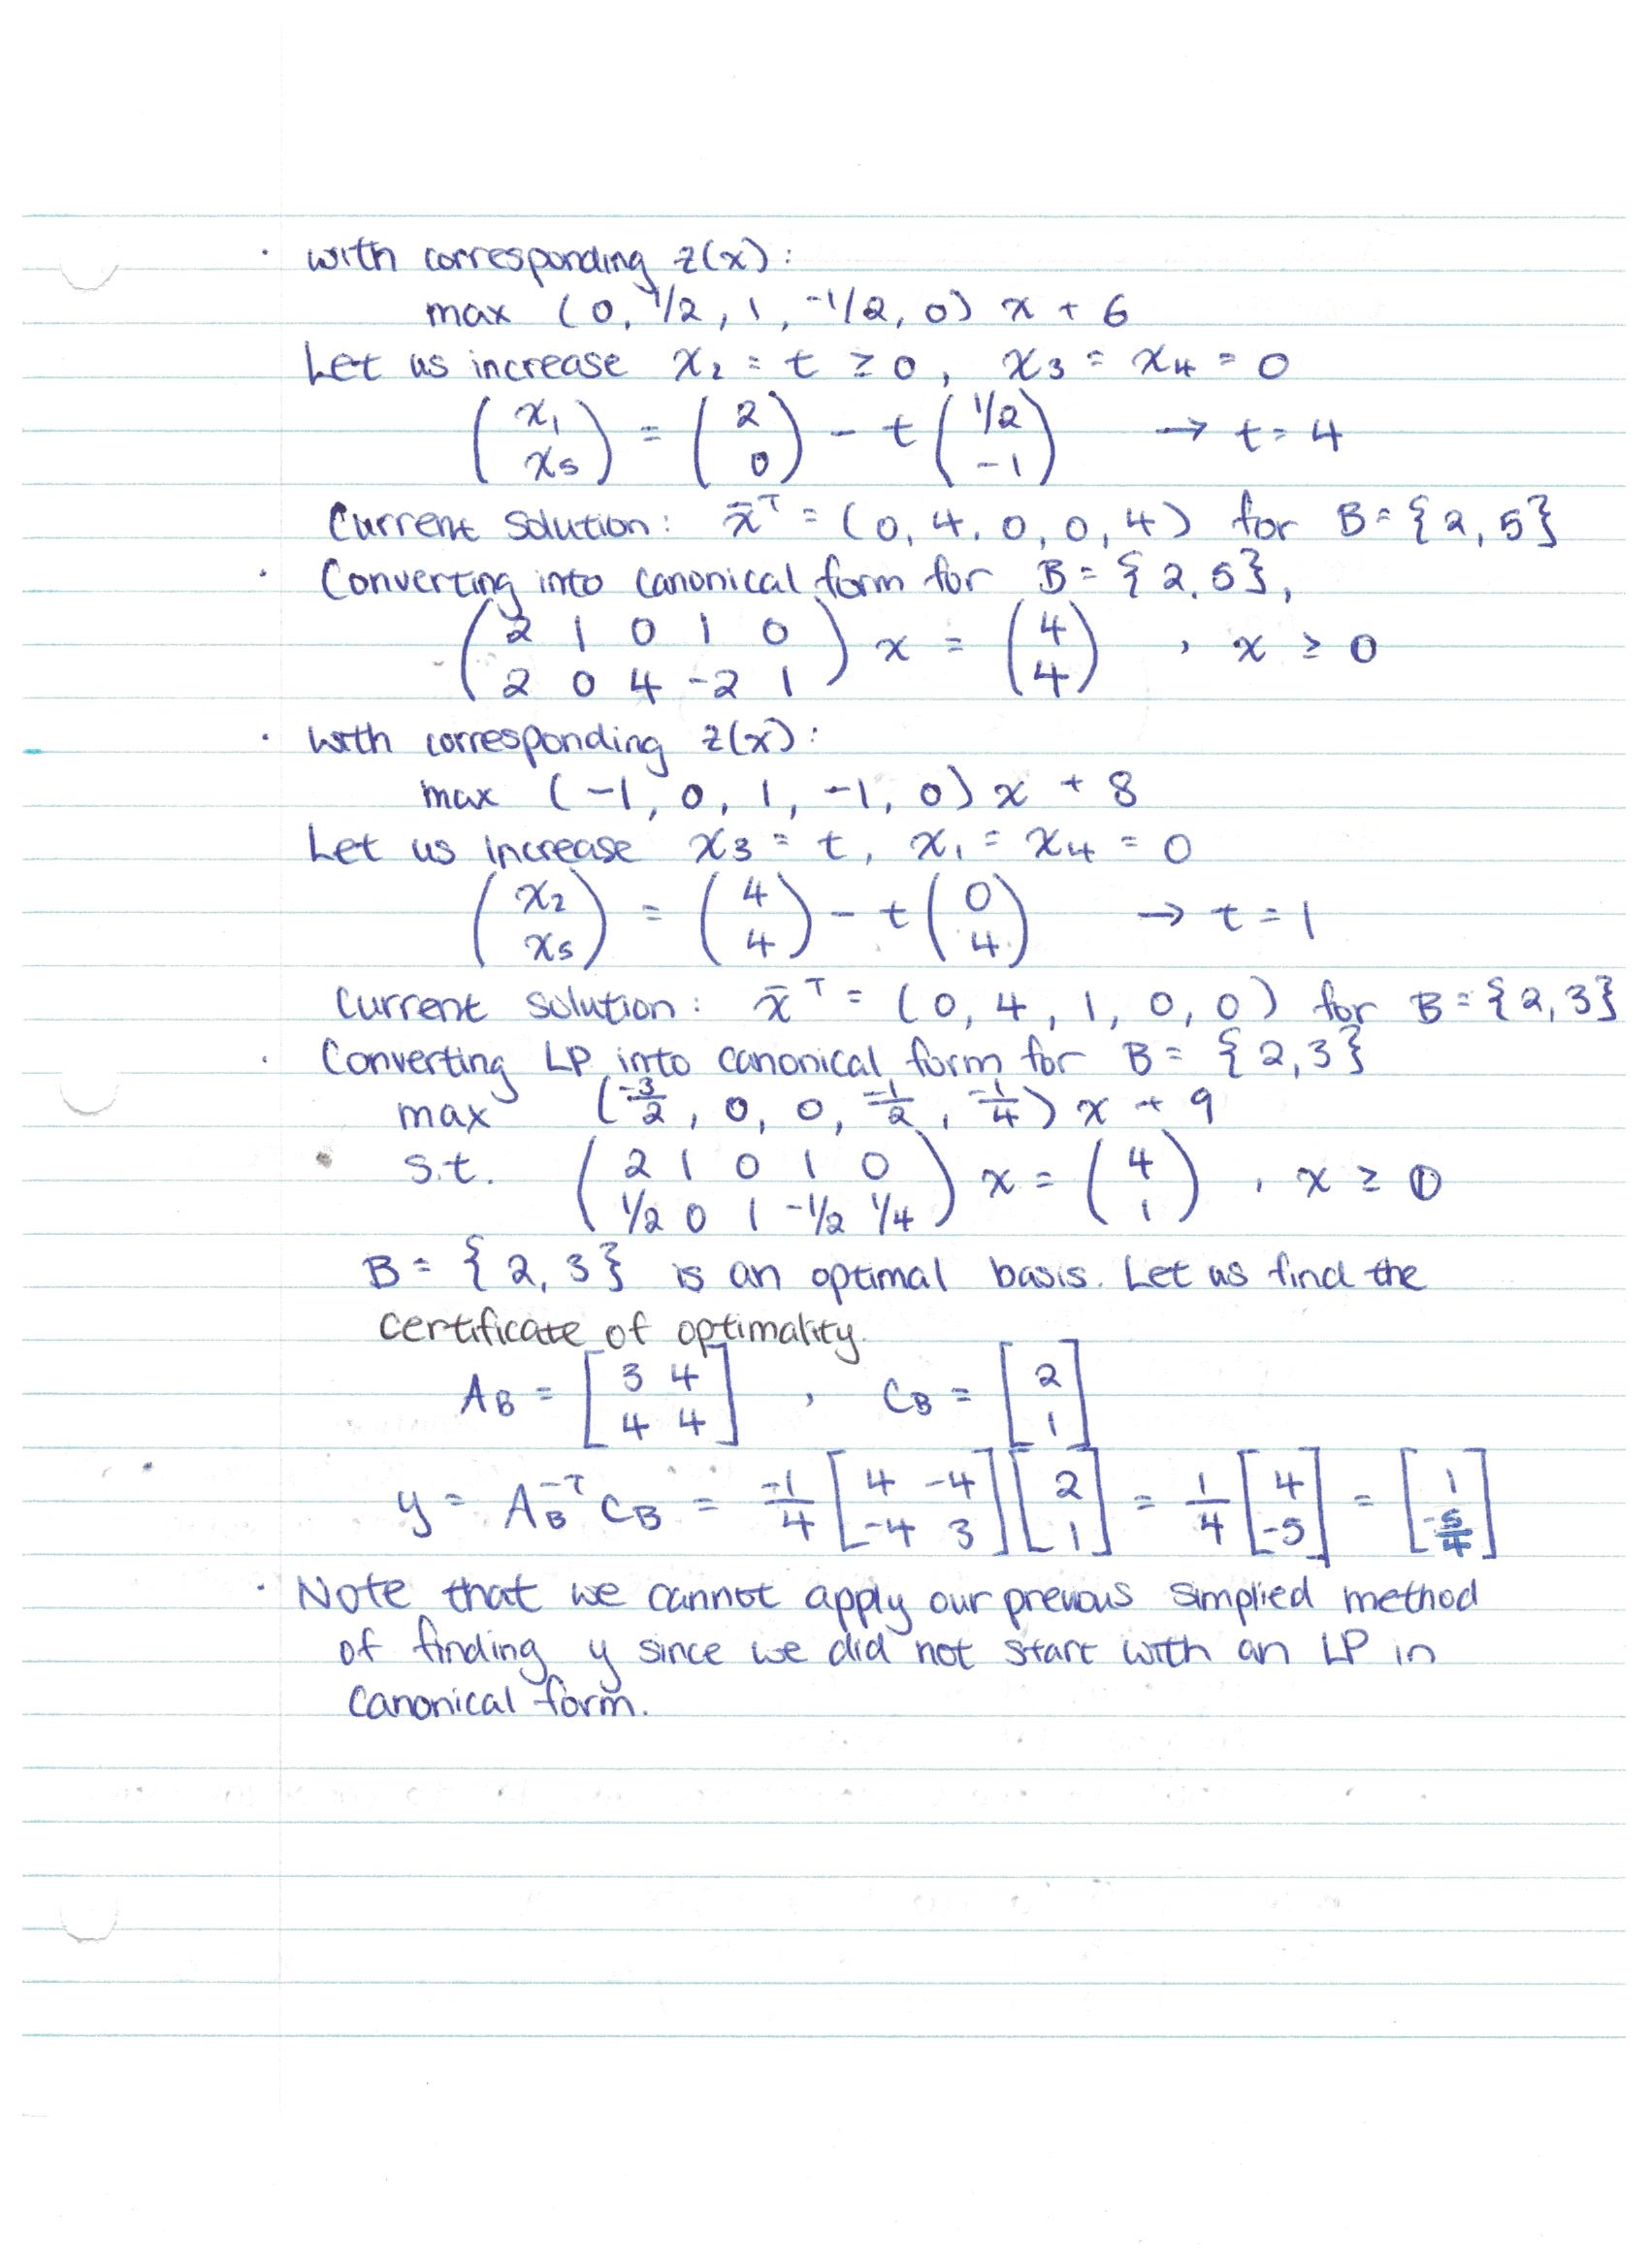 · with corresponding z(x):
max (0, 1/2, 1, -1/2, 0) x + 6
Let us increase x₂ = t ≥ 0, x₃ = x₄ = 0
(x₁ x₅) = (2 0) - t (1/2 -1) → t = 4
Current solution: x̄ᵀ = (0, 4, 0, 0, 4) for B = {2, 5}
· Converting into canonical form for B = {2, 5},
(2 1 0 1 0
2 0 4 -2 1) x = (4 4), x ≥ 0
· with corresponding z(x):
max (-1, 0, 1, -1, 0) x + 8
Let us increase x₃ = t, x₁ = x₄ = 0
(x₂ x₅) = (4 4) - t (0 4) → t = 1
Current solution: x̄ᵀ = (0, 4, 1, 0, 0) for B = {2, 3}
· Converting LP into canonical form for B = {2, 3}
max (-3/2, 0, 0, -1/2, -1/4) x + 9
s.t. (2 1 0 1 0
1/2 0 1 -1/2 1/4) x = (4 1), x ≥ 0
B = {2, 3} is an optimal basis. Let us find the
certificate of optimality.
A_B = [3 4
4 4], C_B = [2 1]
y = A_B⁻ᵀ C_B = -1/4 [4 -4
-4 3] [2 1] = 1/4 [4 -5] = [1 -5/4]
· Note that we cannot apply our prevous simplied method
of finding y since we did not start with an LP in
canonical form.